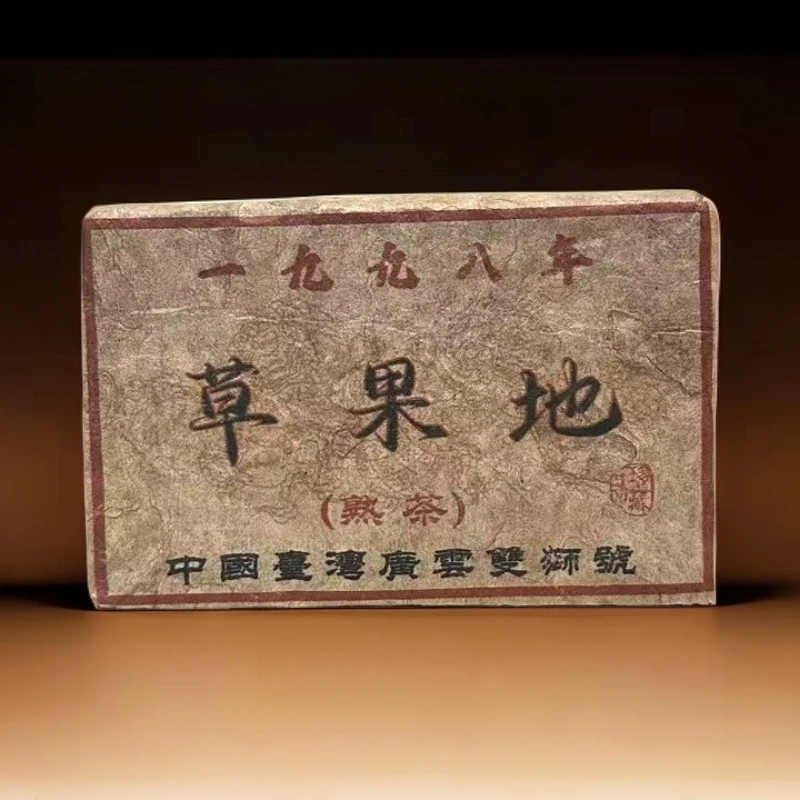 一九九八年
草果地
(熟茶)
中國臺灣廣雲雙獅號